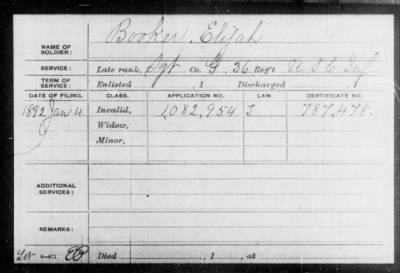 Booker, Elijah
NAME OF SOLDIER:
SERVICE: Late rank, Sgt Co. G, 36 Reg't U S C Inf
TERM OF SERVICE: Enlisted , 1 Discharged
DATE OF FILING. CLASS. APPLICATION NO. LAW. CERTIFICATE NO.
1892 Jan 4 Invalid, 1,082,954 J 787,478.
Widow,
Minor,
ADDITIONAL SERVICES:
REMARKS:
Died , 1 , at